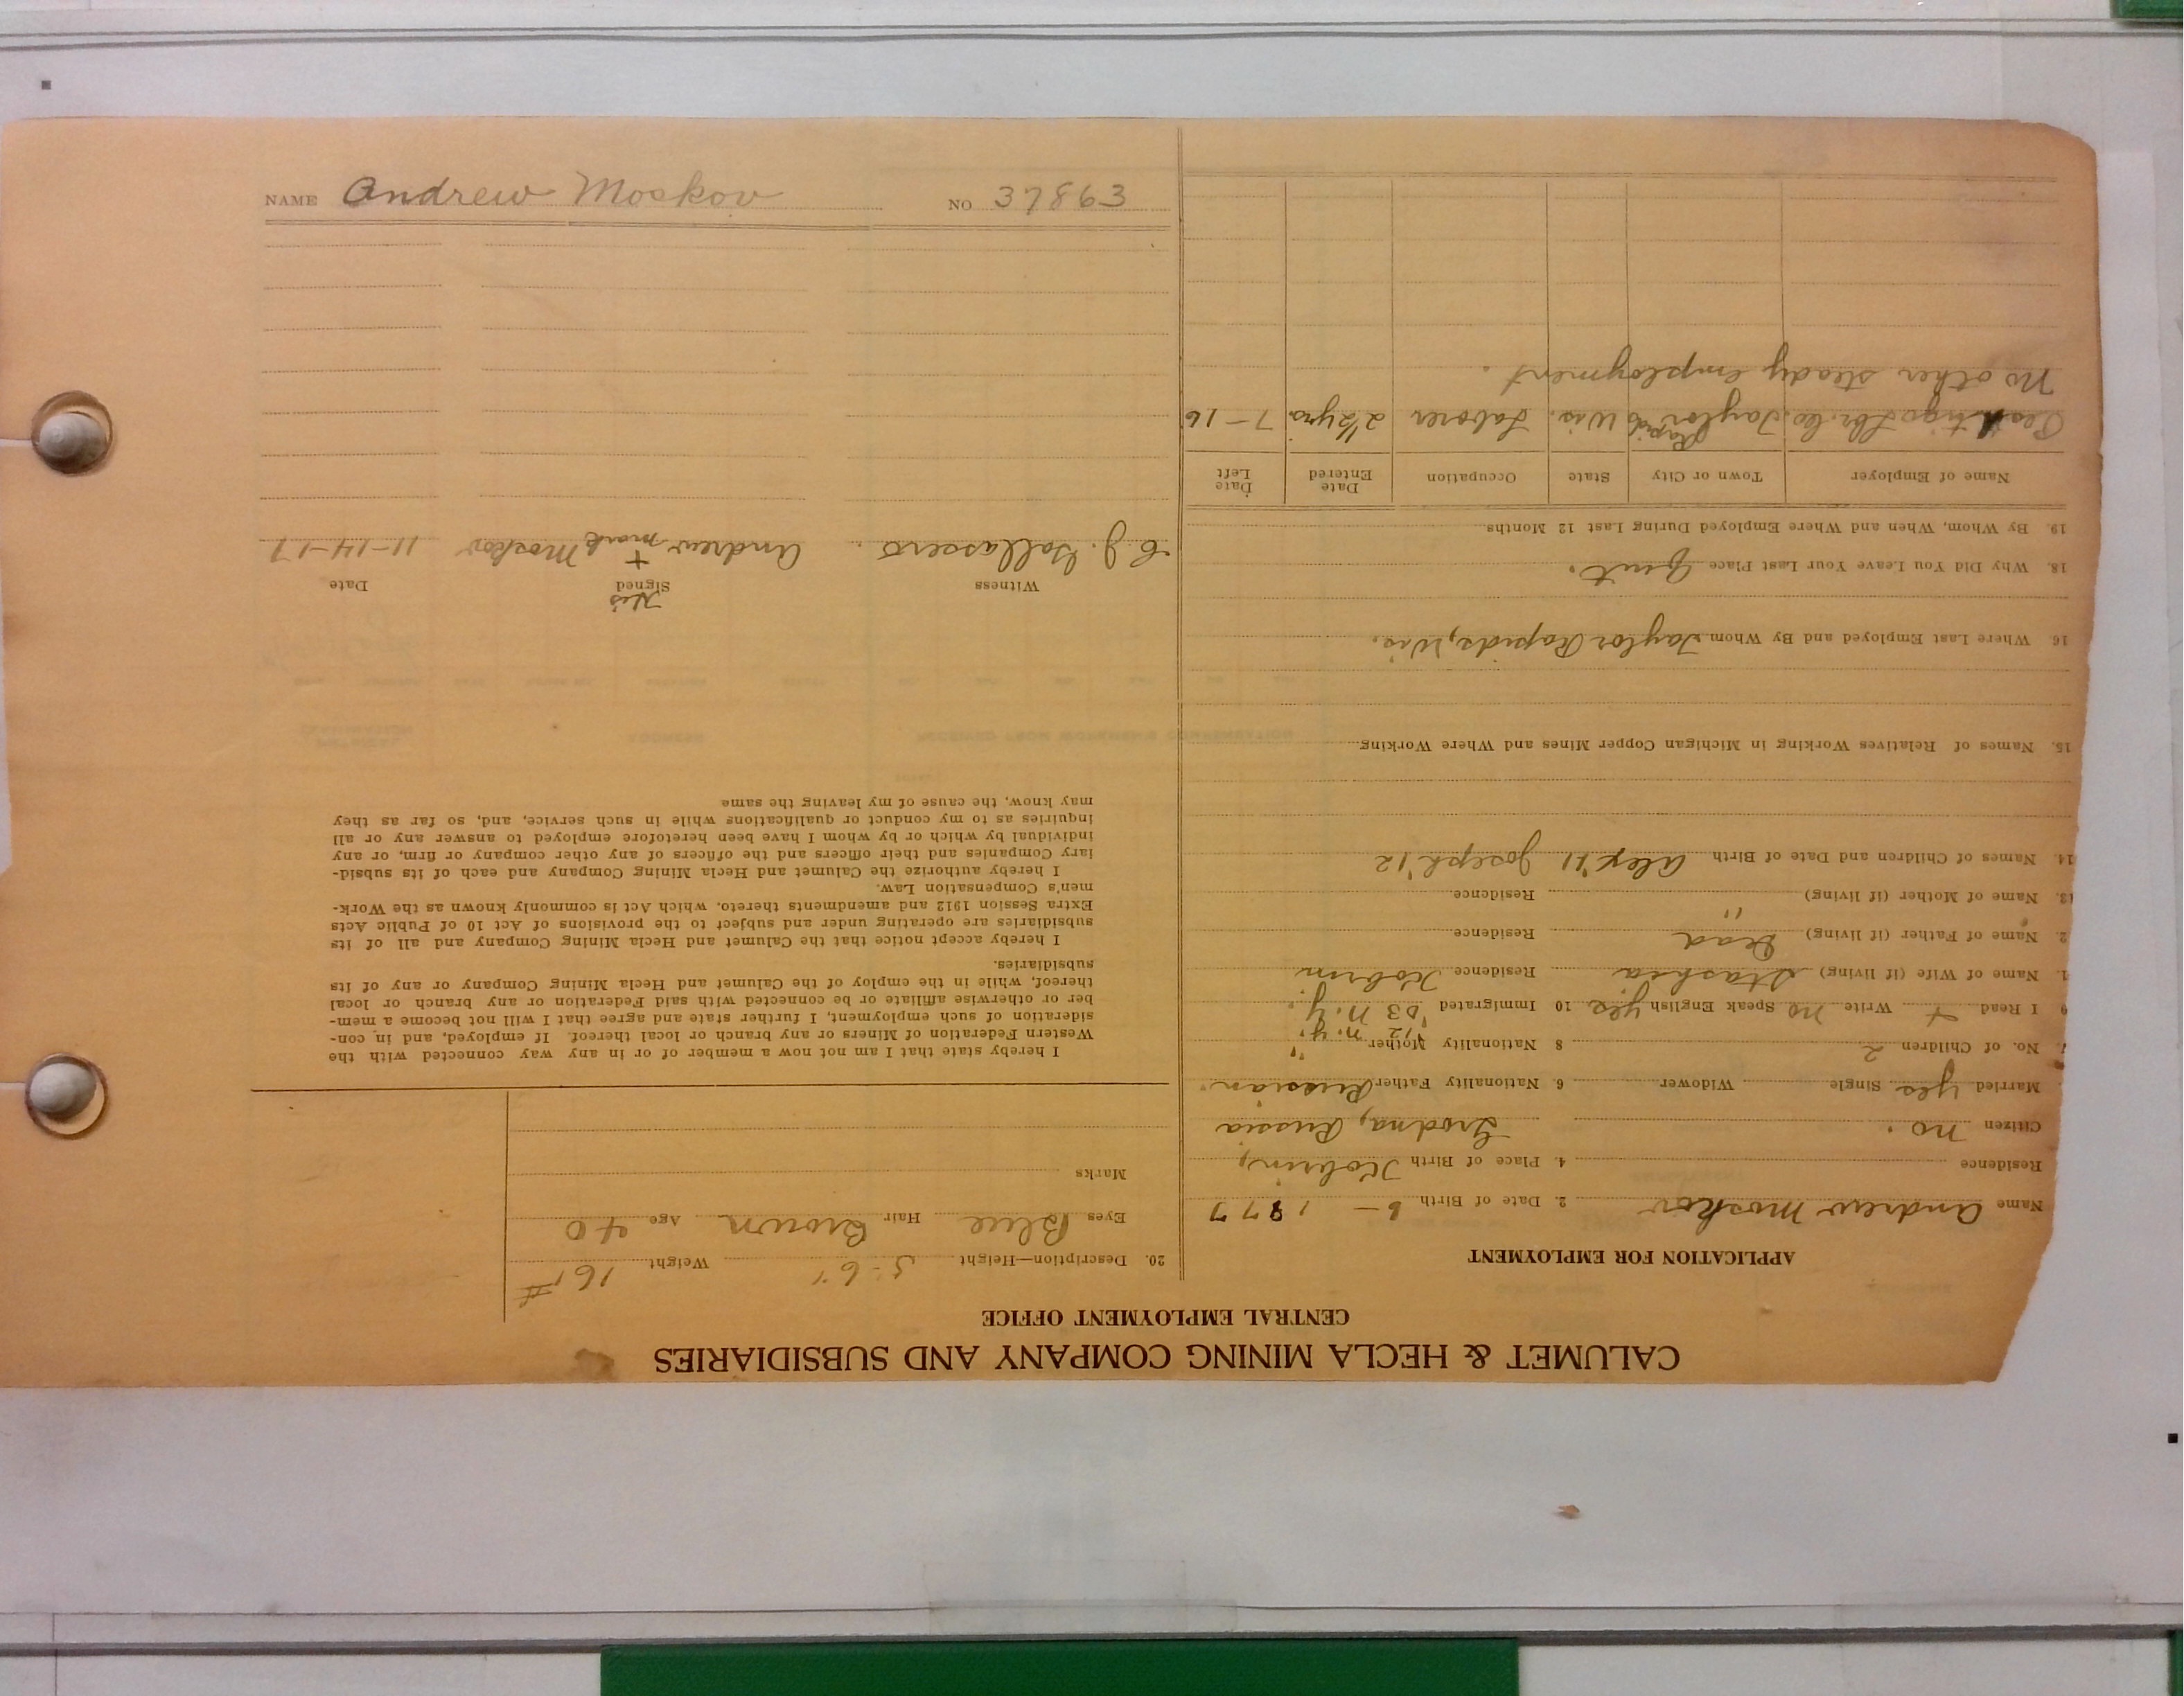 CALUMET & HECLA MINING COMPANY AND SUBSIDIARIES
CENTRAL EMPLOYMENT OFFICE
APPLICATION FOR EMPLOYMENT
Name Andrew Moskov 2. Date of Birth 6 – 1877
Residence 4. Place of Birth Kobrin,
Citizen no. Grodna, Russia
Married yes Single Widower 6. Nationality Father Russian
7. No. of Children 2 8 Nationality Mother "
'12 N.Y.
9 I Read + Write no Speak English yes 10 Immigrated '03 N.Y.
Name of Wife (if living) Stashia Residence Kobrin
2. Name of Father (if living) Dead Residence
13. Name of Mother (if living) " Residence
14. Names of Children and Date of Birth Alex '11 Joseph '12
15. Names of Relatives Working in Michigan Copper Mines and Where Working
16 Where Last Employed and By Whom Taylor Rapids, Wis.
18. Why Did You Leave Your Last Place Quit.
19. By Whom, When and Where Employed During Last 12 Months
Name of Employer Town or City State Occupation Date Entered Date Left
Lbr. Co. Taylor Rapids Wis. Laborer 2½ yrs. 7–16
No other steady employment.
20. Description—Height 5-6" Weight 161#
Eyes Blue Hair Brown Age 40
Marks
I hereby state that I am not now a member of or in any way connected with the
Western Federation of Miners or any branch or local thereof. If employed, and in con-
sideration of such employment, I further state and agree that I will not become a mem-
ber or otherwise affiliate or be connected with said Federation or any branch or local
thereof, while in the employ of the Calumet and Hecla Mining Company or any of its
subsidiaries.
I hereby accept notice that the Calumet and Hecla Mining Company and all of its
subsidiaries are operating under and subject to the provisions of Act 10 of Public Acts
Extra Session 1912 and amendments thereto, which Act is commonly known as the Work-
men's Compensation Law.
I hereby authorize the Calumet and Hecla Mining Company and each of its subsid-
iary Companies and their officers and the officers of any other company or firm, or any
individual by which or by whom I have been heretofore employed to answer any or all
inquiries as to my conduct or qualifications while in such service, and, so far as they
may know, the cause of my leaving the same
Witness Signed Date
His
C.J. Andrew + Moskov 11-14-17
mark
NAME Andrew Moskov NO 37863